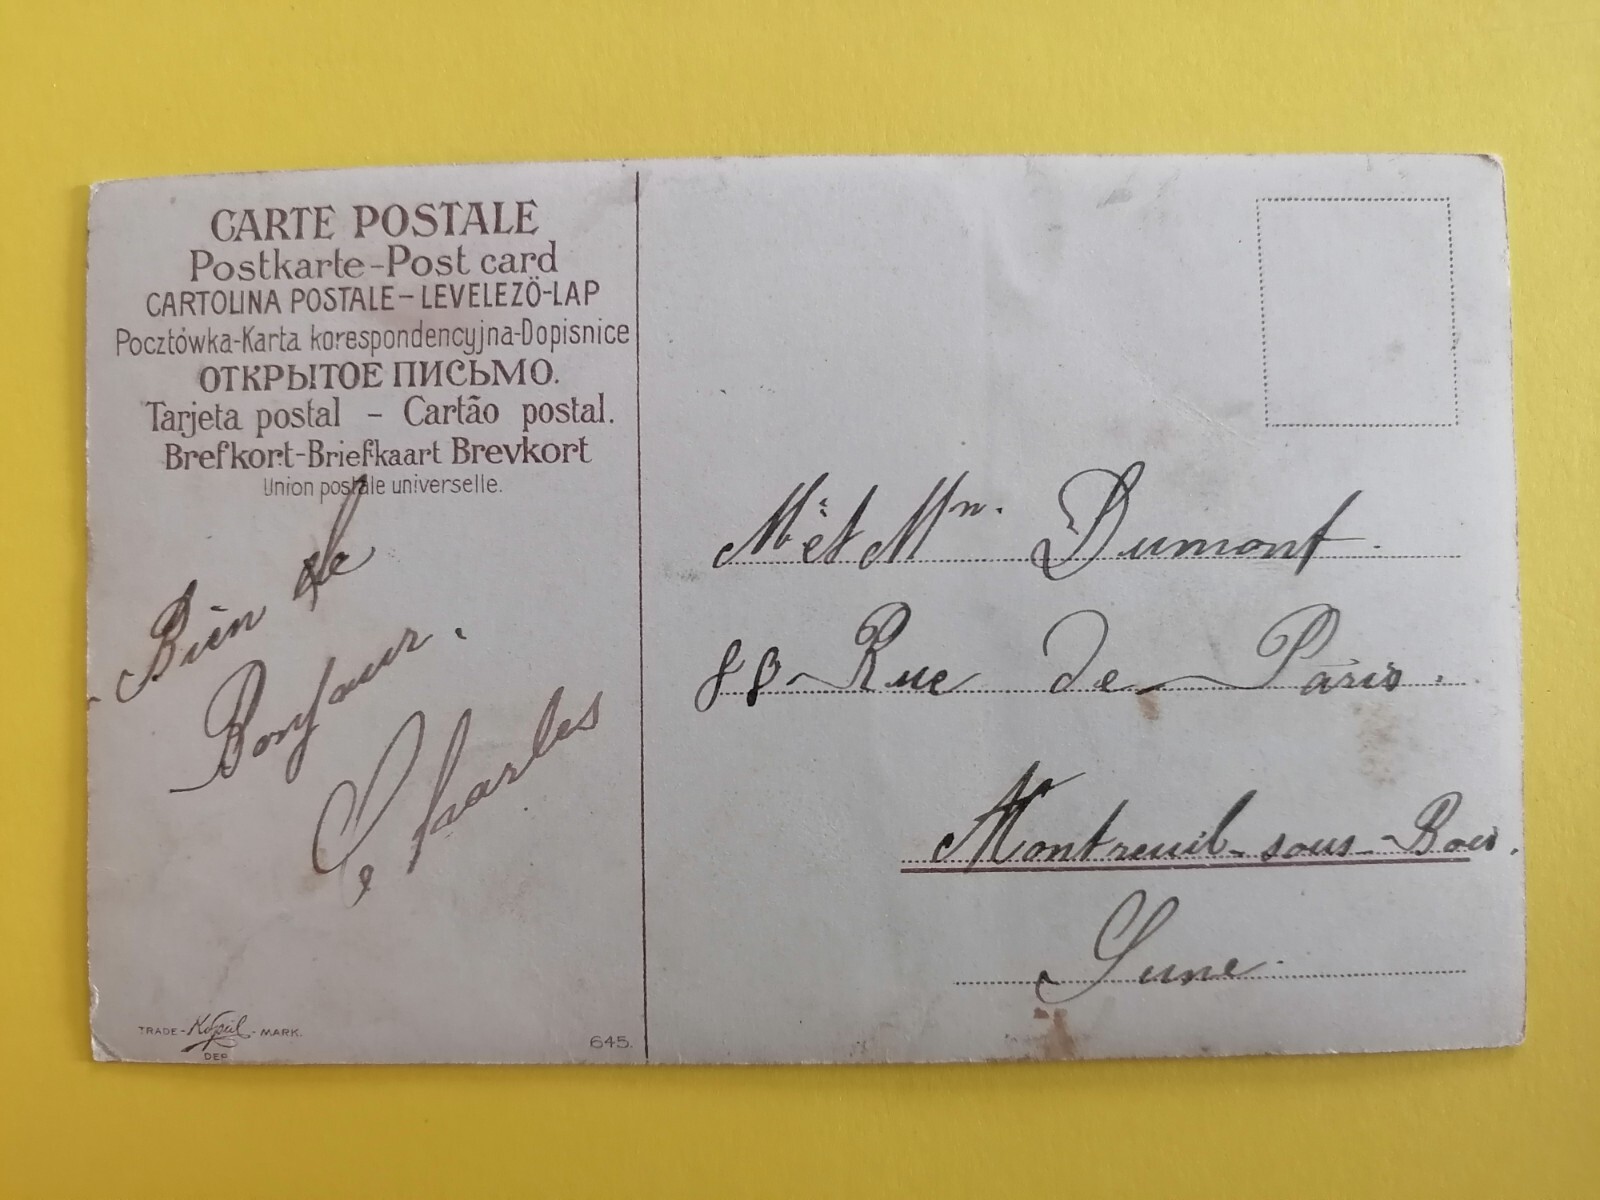 CARTE POSTALE
Postkarte-Post card
CARTOLINA POSTALE-LEVELEZÖ-LAP
Pocztówka-Karta korespondencyjna-Dopisnice
ОТКРЫТОЕ ПИСЬМО.
Tarjeta postal - Cartão postal.
Brefkort-Briefkaart Brevkort
Union postale universelle.
Bien le
Bonjour.
Charles
TRADE- -MARK.
DEP.
645.
Mr et Mn. Dumont.
88 Rue de Paris.
Montreuil-sous-Bois.
Seine.